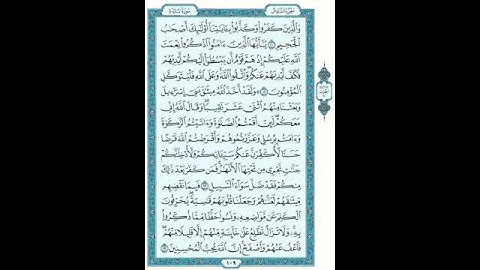 الجزء السادس
سورة المائدة
وَٱلَّذِينَ كَفَرُوا۟ وَكَذَّبُوا۟ بِـَٔايَـٰتِنَآ أُو۟لَـٰٓئِكَ أَصْحَـٰبُ
ٱلْجَحِيمِ ١٠ يَـٰٓأَيُّهَا ٱلَّذِينَ ءَامَنُوا۟ ٱذْكُرُوا۟ نِعْمَتَ
ٱللَّهِ عَلَيْكُمْ إِذْ هَمَّ قَوْمٌ أَن يَبْسُطُوٓا۟ إِلَيْكُمْ أَيْدِيَهُمْ
فَكَفَّ أَيْدِيَهُمْ عَنكُمْ وَٱتَّقُوا۟ ٱللَّهَ وَعَلَى ٱللَّهِ فَلْيَتَوَكَّلِ
ٱلْمُؤْمِنُونَ ١١ وَلَقَدْ أَخَذَ ٱللَّهُ مِيثَـٰقَ بَنِىٓ إِسْرَٰٓءِيلَ
وَبَعَثْنَا مِنْهُمُ ٱثْنَىْ عَشَرَ نَقِيبًا وَقَالَ ٱللَّهُ إِنِّى
مَعَكُمْ لَئِنْ أَقَمْتُمُ ٱلصَّلَوٰةَ وَءَاتَيْتُمُ ٱلزَّكَوٰةَ
وَءَامَنتُم بِرُسُلِى وَعَزَّرْتُمُوهُمْ وَأَقْرَضْتُمُ ٱللَّهَ قَرْضًا
حَسَنًا لَّأُكَفِّرَنَّ عَنكُمْ سَيِّـَٔاتِكُمْ وَلَأُدْخِلَنَّكُمْ
جَنَّـٰتٍ تَجْرِى مِن تَحْتِهَا ٱلْأَنْهَـٰرُ فَمَن كَفَرَ بَعْدَ ذَٰلِكَ
مِنكُمْ فَقَدْ ضَلَّ سَوَآءَ ٱلسَّبِيلِ ١٢ فَبِمَا نَقْضِهِم
مِّيثَـٰقَهُمْ لَعَنَّـٰهُمْ وَجَعَلْنَا قُلُوبَهُمْ قَـٰسِيَةً يُحَرِّفُونَ
ٱلْكَلِمَ عَن مَّوَاضِعِهِۦ وَنَسُوا۟ حَظًّا مِّمَّا ذُكِّرُوا۟
بِهِۦ وَلَا تَزَالُ تَطَّلِعُ عَلَىٰ خَآئِنَةٍ مِّنْهُمْ إِلَّا قَلِيلًا مِّنْهُمْ
فَٱعْفُ عَنْهُمْ وَٱصْفَحْ إِنَّ ٱللَّهَ يُحِبُّ ٱلْمُحْسِنِينَ ١٣
١٠٩